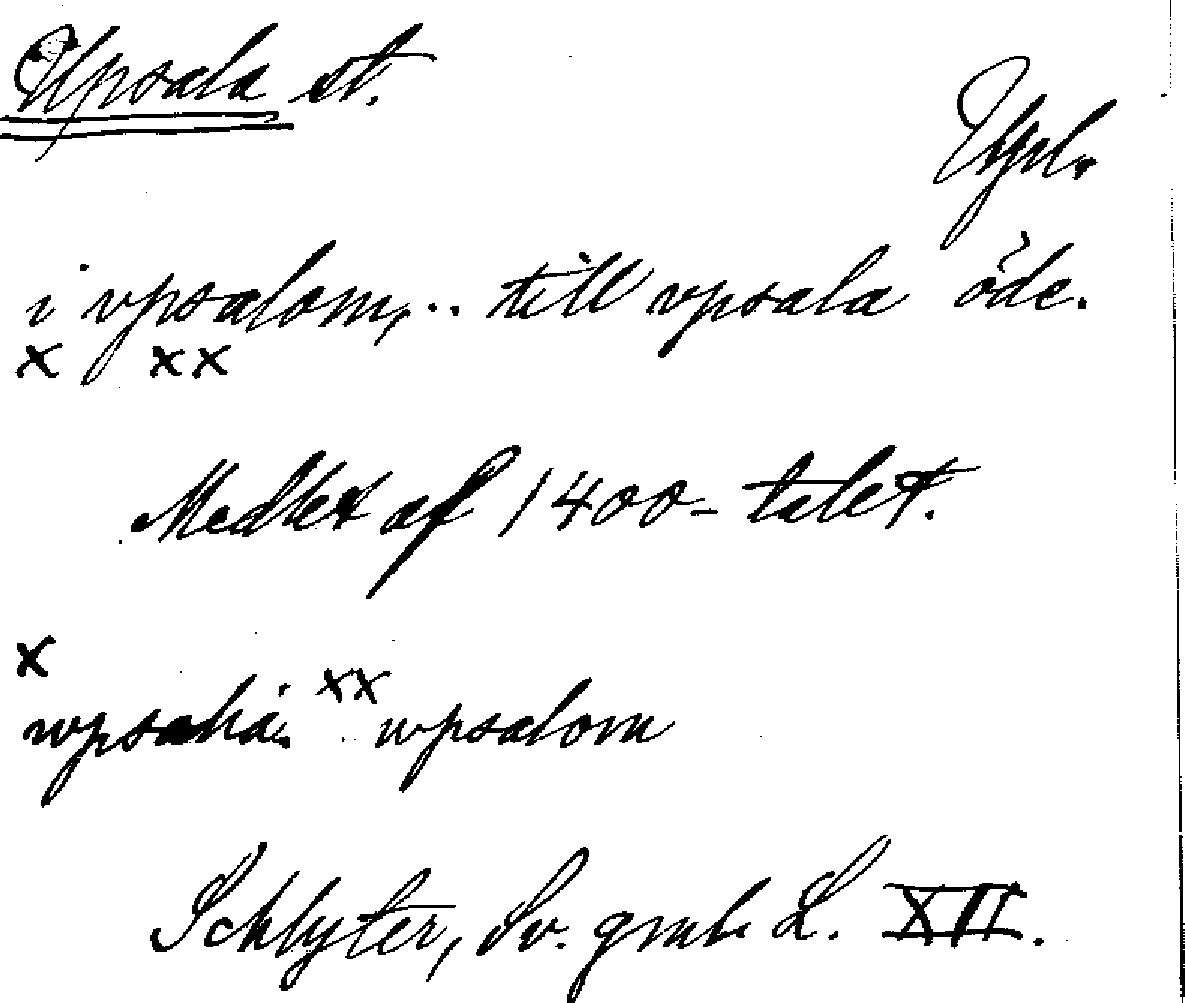 Upsala st.
Upl.
i vpsalom,.. till vpsala öde.
x xx
Medlet af 1400-talet.
x xx
wpsala. wpsalom
Schlyter, Sv. gml. L. XII.